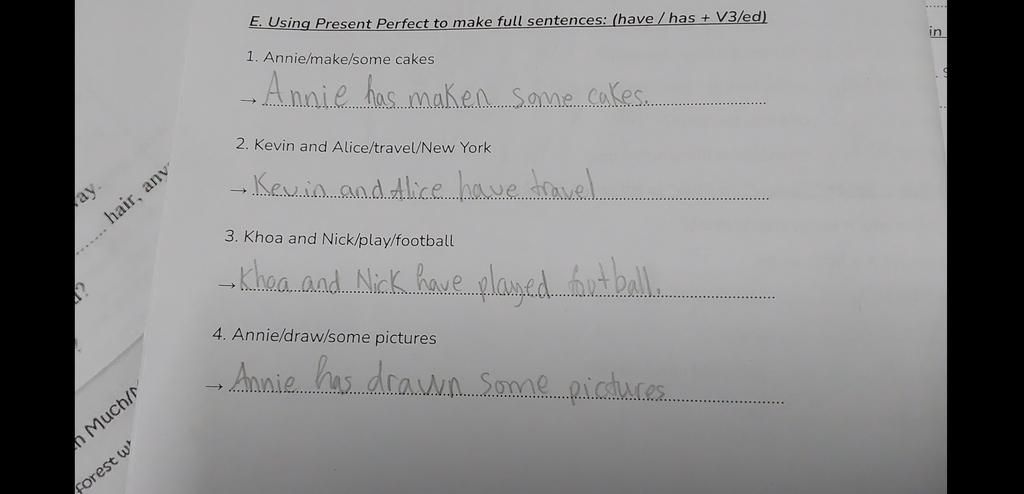 E. Using Present Perfect to make full sentences: (have / has + V3/ed)
1. Annie/make/some cakes
→ Annie has maken some cakes.
2. Kevin and Alice/travel/New York
→ Kevin and Alice have travel
3. Khoa and Nick/play/football
→ Khoa and Nick have played football.
4. Annie/draw/some pictures
→ Annie has drawn some pictures
ay.
hair, any
Much/
forest w
in